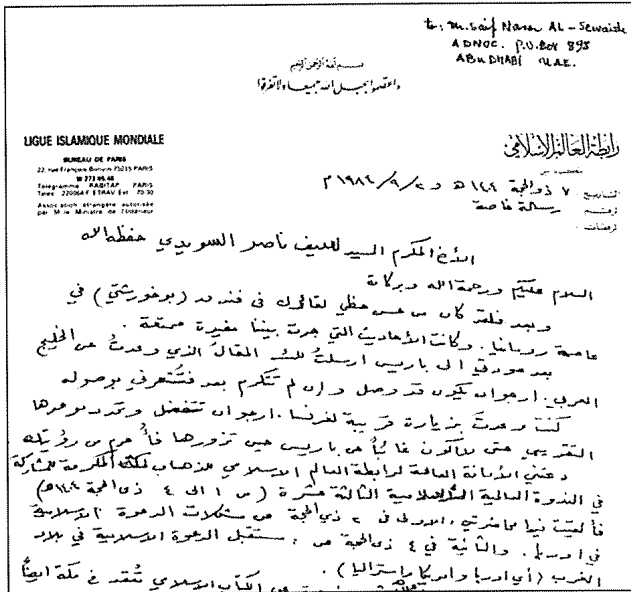 to: M. Saif Naser AL-Sewaidi
ADNOC. P.O.Box 898
ABU DHABI UAE.
بسم الله الرحمن الرحيم
واعتصموا بحبل الله جميعا ولا تفرقوا
LIGUE ISLAMIQUE MONDIALE
BUREAU DE PARIS
22, rue François Bonvin 75015 PARIS
Télégramme RABITAP PARIS
Association étrangère autorisée
par M. le Ministre de l'Intérieur
رابطة العالم الإسلامي
مكتب باريس
التاريخ ٧ ذو الحجة ه و ٢/٩/١٩٨٤ م
الرقم رسالة خاصة
المرفقات
الأخ المكرم السيد لسيف ناصر السويدي حفظه الله
السلام عليكم ورحمة الله وبركاته
وبعد فلقد كان من حسن حظي لقائك في فندق (بوخورشتي) في
عاصمة رومانيا. وكانت الأحاديث التي جرت بيننا مفيدة ممتعة.
بعد عودتي الى باريس ارسلت لك المقال الذي وعدت عن الخليج
العربي. ارجو ان يكون قد وصل وان لم تتكرم بعد فتشعرني بوصوله
كنت وعدت بزيارة قريبة لفرنسا. ارجو ان تتفضل وتحدد موعدها
التقريبي حتى لا أكون غائباً عن باريس حين تزورها فأحرم من رؤيتك
دعتني الأمانة العامة لرابطة العالم الاسلامي للذهاب لمكة المكرمة للمشاركة
في الندوة العالمية الثالثة عشرة (من ١ الى ٤ ذي الحجة)
فألقيت فيها محاضرتين، الاولى في ٢ ذي الحجة عن مشكلات الدعوة الاسلامية
في اوربا. والثانية في ٤ ذي الحجة عن مستقبل الدعوة الاسلامية في بلاد
الغرب (أي اوربا وامريكا واستراليا).
عن الكتاب الاسلامي تنعقد في مكة ايضاً